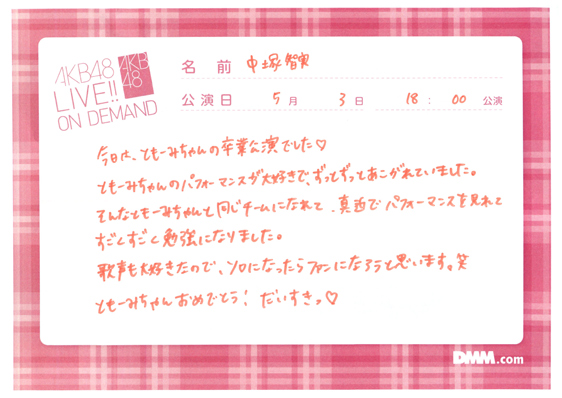 AKB48
LIVE!!
ON DEMAND
AKB
48
名 前 中塚智実
公演日 5月 3日 18:00 公演
今日は、ともーみちゃんの卒業公演でした♡
ともーみちゃんのパフォーマンスが大好きで、ずっとずっとあこがれていました。
そんなともーみちゃんと同じチームになれて、真近でパフォーマンスを見れて
すごくすごく勉強になりました。
歌声も大好きなので、ソロになったらファンになろうと思います。笑
ともーみちゃんおめでとう！ だいすきっ♡
DMM.com